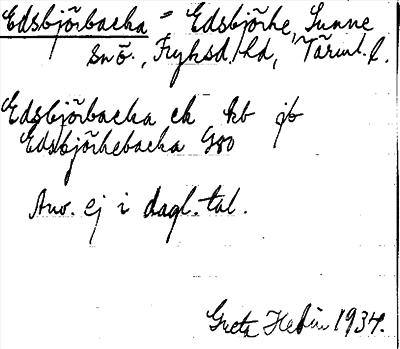 Edsbjörbacka = Edsbjörke, Sunne
sn ö., Fryksd. hd, Värml. l.
Edsbjörbacka ek kb jb
Edsbjörkebacka G80
Anv. ej i dagl. tal.
Greta Hedin 1934.